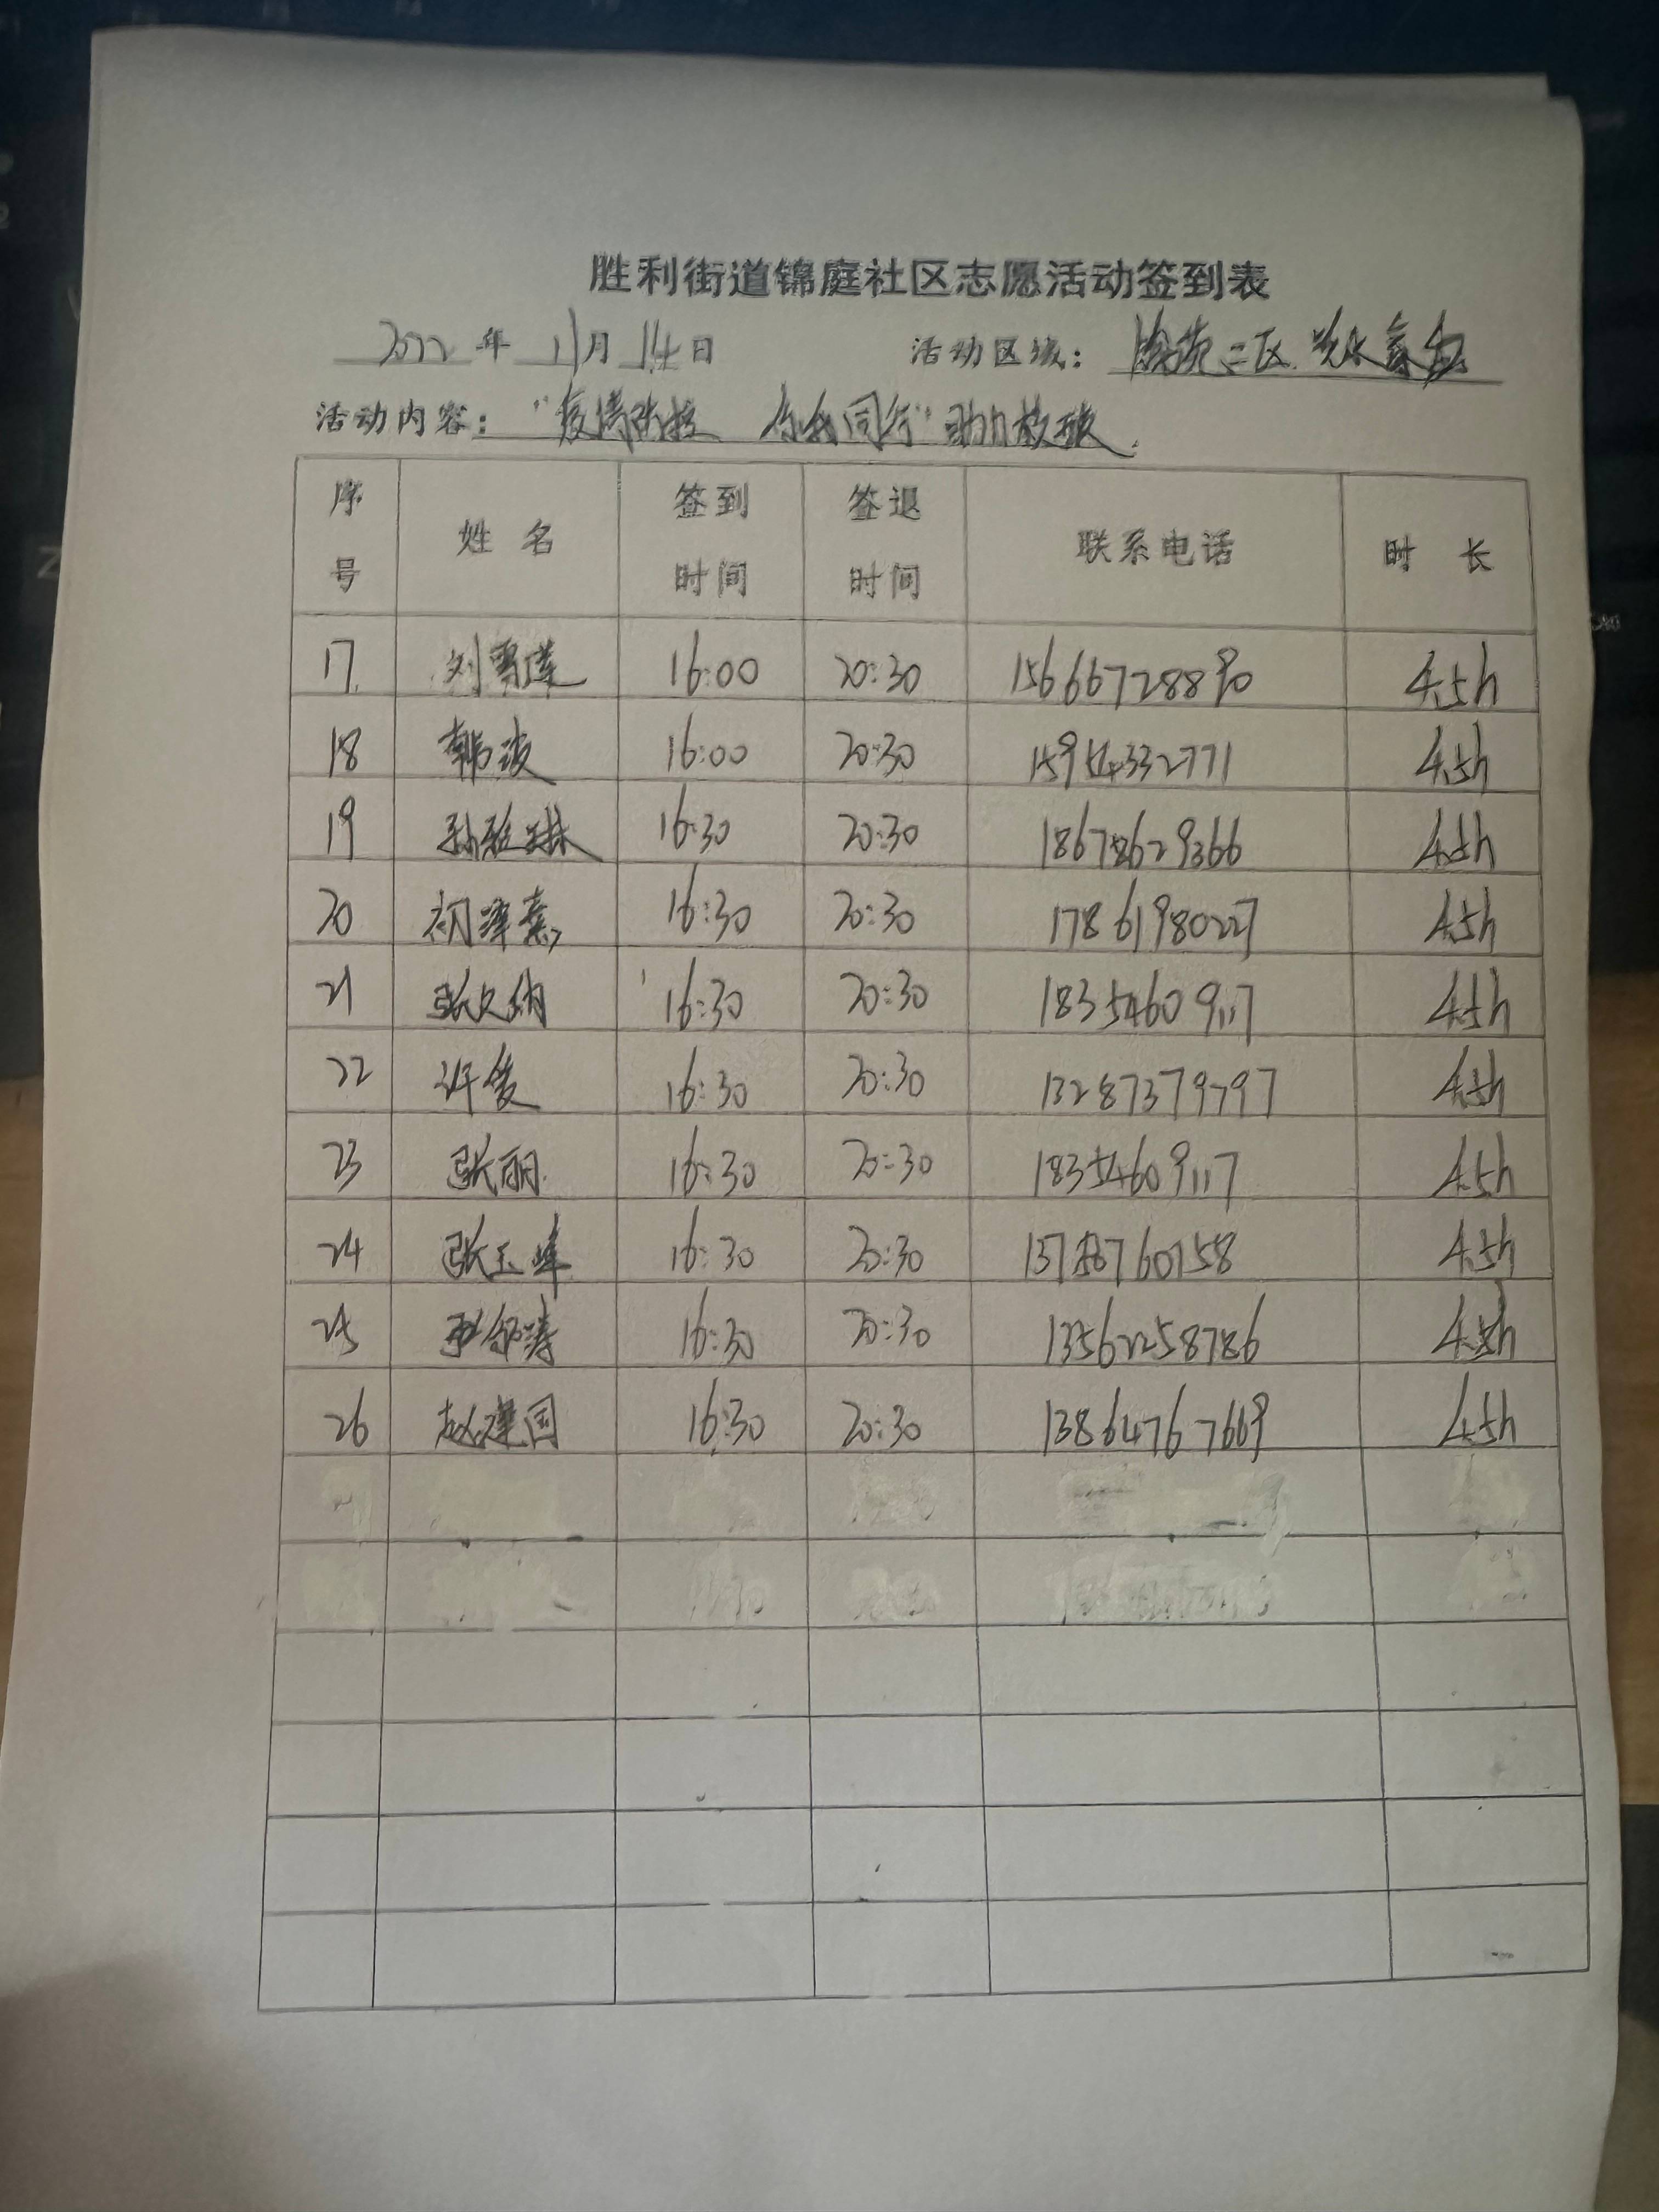 胜利街道锦庭社区志愿活动签到表
2022年 11月 14日 活动区域: 二区
活动内容: "疫情防控 你我同行"助力核酸.
序号 姓名 签到时间 签退时间 联系电话 时长
17 刘雪莲 16:00 20:30 15666728890 4.5h
18 韩波 16:00 20:30 15954332771 4.5h
19 孙雅琳 16:30 20:30 18678629366 4.5h
20 初泽熹 16:30 20:30 17861980227 4.5h
21 张文娟 16:30 20:30 18354609117 4.5h
22 许俊 16:30 20:30 13287379797 4.5h
23 张丽 16:30 20:30 18354609117 4.5h
24 张玉峰 16:30 20:30 4.5h
25 16:30 20:30 13562258786 4.5h
26 赵建国 16:30 20:30 13864767669 4.5h